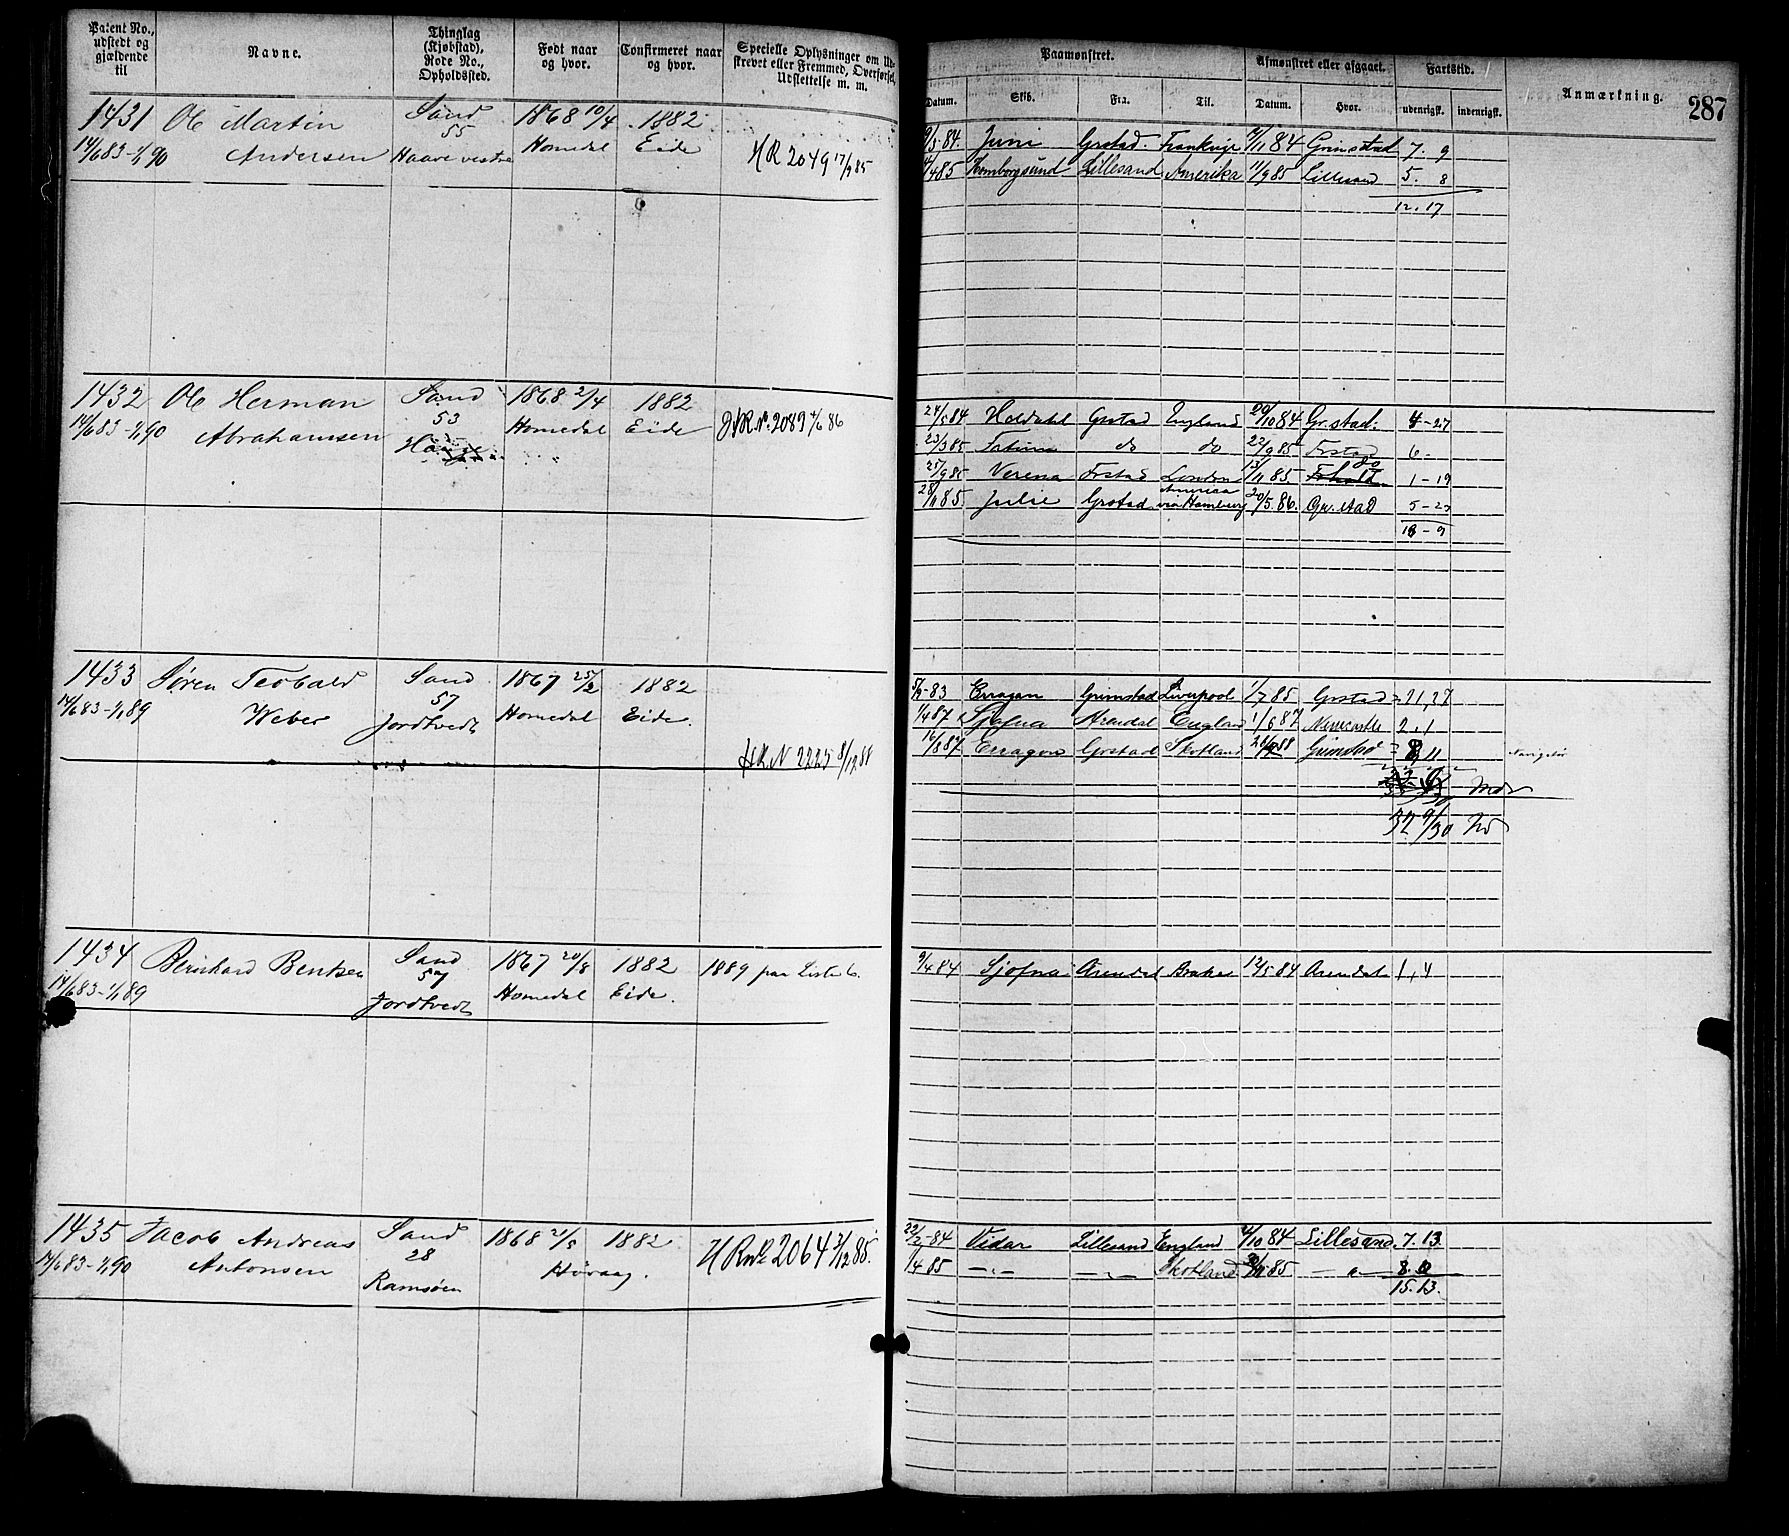 Patent No., udstedt og gjældende til
Navne.
Thinglag (Kjøbstad), Rode No., Opholdssted.
Født naar og hvor.
Confirmeret naar og hvor.
Specielle Oplysninger om Udskrevet eller Fremmed, Overførsel, Udslettelse m. m.
Paamønstret.
Afmønstret eller afgaaet.
Fartstid.
Anmærkning.
287
Datum. Skib. Fra. Til. Datum. Hvor. udenrigsk. indenrigsk.
1431 Ole Martin Sand 1868 10/4 1882
55
14/6 83-1/1 90 Andersen Haave vestre Homedal Eide HR 2049 17/9 85
9/5 84 Juni Grstad. Frankrige 21/11 84 Grimstad 7. 9
4/4 85 Homborgsund Lillesand Amerika 11/9 85 Lillesand 5. 8
12. 17
1432 Ole Herman Sand 1868 2/4 1882
53
14/6 83-1/1 90 Abrahamsen Homedal Eide HR No. 2089 4/6 86
24/5 84 Holdahl Grstad England 20/10 84 Grstad. 4-27
23/3 85 do do 22/9 85 Frstad 6-
do
25/9 85 Verena Frstad London 13/11 85 1-19
America
28/11 85. Julie Grstad via Hamburg 20/5. 86. Gr.stad 5-23
18-9
1433 Søren Teobald Sand 1867 25/2 1882
57
14/6 83-1/1 89 Weber Jordtvedt Homedal Eide.
HR. N 2225 8/12 88
5/9-83 Erragon Grimstad Liverpool 1/7 85 Grstad 21,27
1/4 87 Sjofna Arendal England 1/6 87 Newcastle 2,1
16/8 87 Erragon Grstad Skotland Grimstad 8,11
32 9/30
1434 Bernhard Bentsen Sand 1867 20/8 1882 1889 paa Liste 6.
57
14/6 83-1/1 89 Jordtvedt Homedal Eide.
9/4 84 Sjofna Arendal Brake 12/5 84 Arendal 1,4
1435 Jacob Andreas Sand 1868 21/5 1882 HR No. 2064 3/12 85.
28
14/6 83-1/1 90 Antonsen Ramsøen Høvaag.
22/2-84 Vidar Lillesand England 4/10 84 Lillesand. 7. 13.
1/4 85 -„- -„- Skotland -„- 8. 0
15. 13.